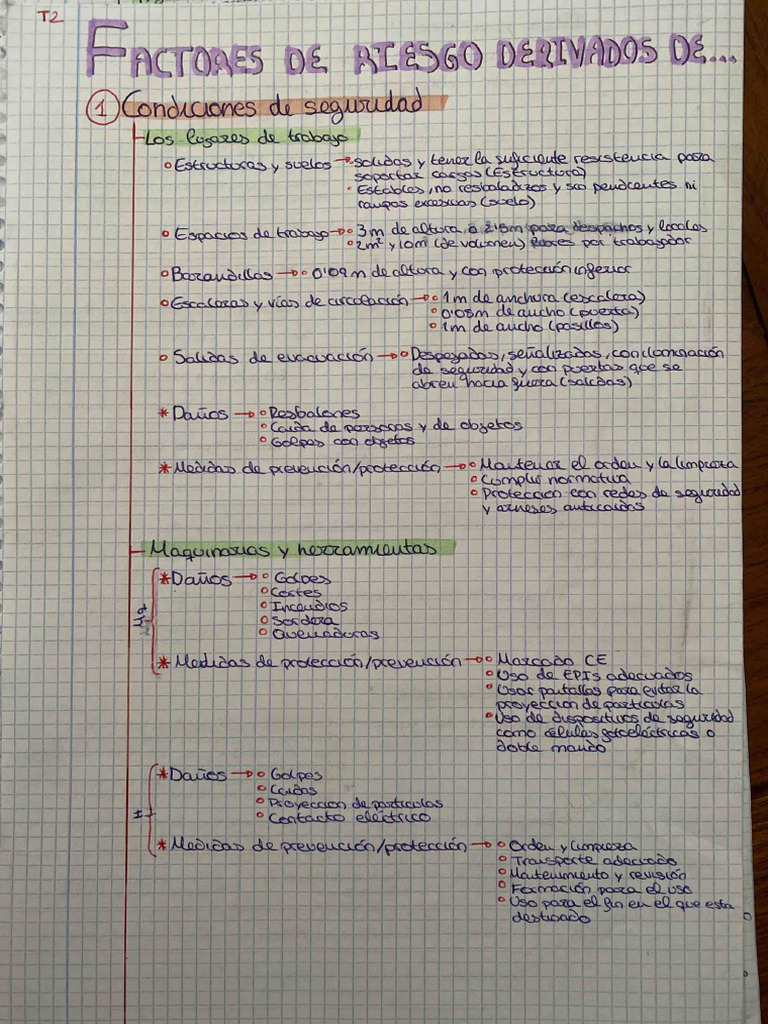 T2
FACTORES DE RIESGO DERIVADOS DE...
1 Condiciones de seguridad
Los lugares de trabajo
Estructuras y suelos → solidas y tener la suficiente resistencia para
soportar cargas (Estructura)
Estables, no resbaladizos y sin pendientes ni
rampas excesivas (suelo)
Espacios de trabajo → 3m de altura o 2'5m para despachos y locales
2m² y 10m (de volumen) libres por trabajador
Barandillas → 0'09m de altura y con protección inferior
Escaleras y vías de circulación → 1m de anchura (escalera)
0'08m de ancho (puerta)
1m de ancho (pasillos)
Salidas de evacuación → Despejadas, señalizadas, con iluminación
de seguridad y con puertas que se
abren hacia fuera (salidas)
* Daños → Resbalones
Caida de personas y de objetos
Golpes con objetos
* Medidas de prevención/protección → Mantener el orden y la limpieza
Cumplir normativa
Protección con redes de seguridad
y arneses anticaidas
Maquinarias y herramientas
Mq
* Daños → Golpes
Cortes
Incendios
Sordera
Quemaduras
* Medidas de protección/prevención → Marcado CE
Uso de EPIs adecuados
Usar pantallas para evitar la
proyección de particulas
Uso de dispositivos de seguridad
como células fotoeléctricas o
doble mando
H
* Daños → Golpes
Caidas
Proyección de particulas
Contacto eléctrico
* Medidas de prevención/protección → Orden y limpieza
Transporte adecuado
Mantenimiento y revisión
Formación para el uso
Uso para el fin en el que esta
destinado